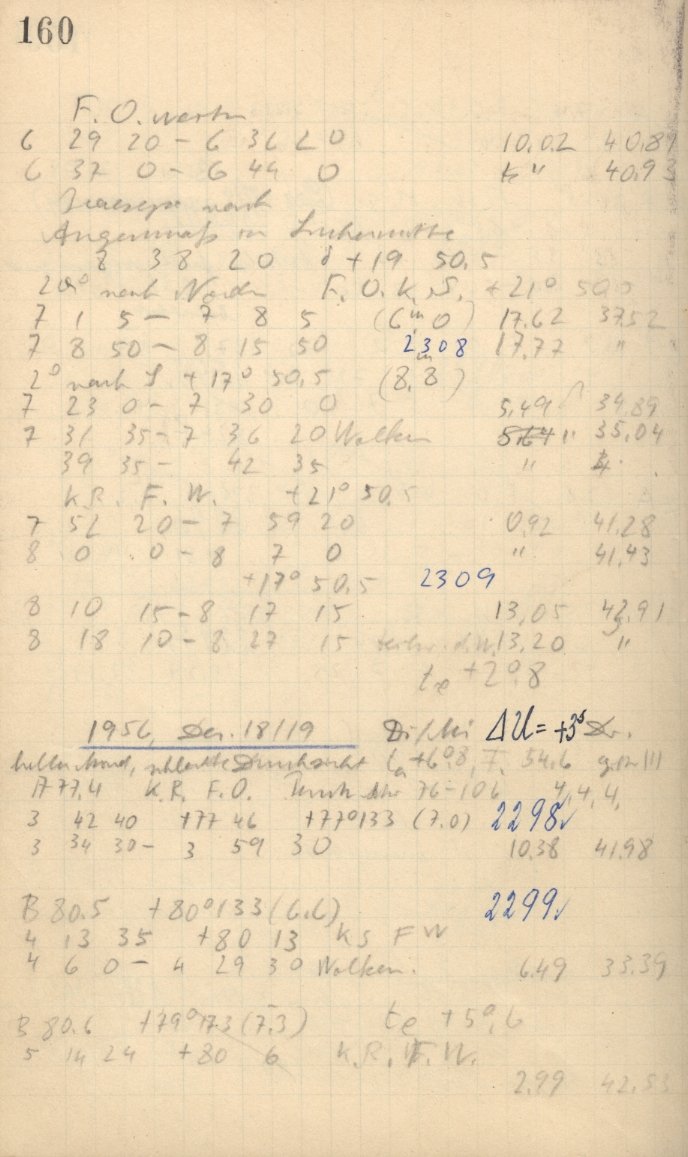 160
F. O. warten
6 29 20 - 6 36 20 10.02 40.89
6 37 0 - 6 44 0 " 40.93
nach
Augenmaß in
8 38 20 δ +19 50.5
nach Norden F. O. K. S. +21° 50.5
7 1 5 - 7 8 5 (6.0) 17.62 37.52
7 8 50 - 8 15 50 2308 17.77 "
2° nach S +17° 50.5 (8.8)
7 23 0 - 7 30 0 5.49 39.89
7 31 35 - 7 36 20 Wolken " 35.04
39 35 - 42 35 "
K.R. F. W. +21° 50.5
7 52 20 - 7 59 20 0.92 41.28
8 0 0 - 8 7 0 " 41.43
+17° 50.5 2309
8 10 15 - 8 17 15 13.05 42.91
8 18 10 - 8 27 15 13.20 "
te +2°.8
1956, Dez. 18/19 ΔU = +3s Dr.
heller Mond, schlechte Durchsicht ta +6°.8, F. 54.6 III
A 77.4 K.R. F.O. 76-106 4, 4, 4,
3 42 40 +77 46 +77°133 (7.0) 2298✓
3 34 30 - 3 59 30 10.38 41.98
B 80.5 +80°133 (6.6) 2299✓
4 13 35 +80 13 K S F W
4 6 0 - 4 29 30 Wolken. 6.49 33.39
B 80.6 +79°173 (7.3) te +5°.6
5 14 24 +80 6 K. R. F. W.
2.99 42.53